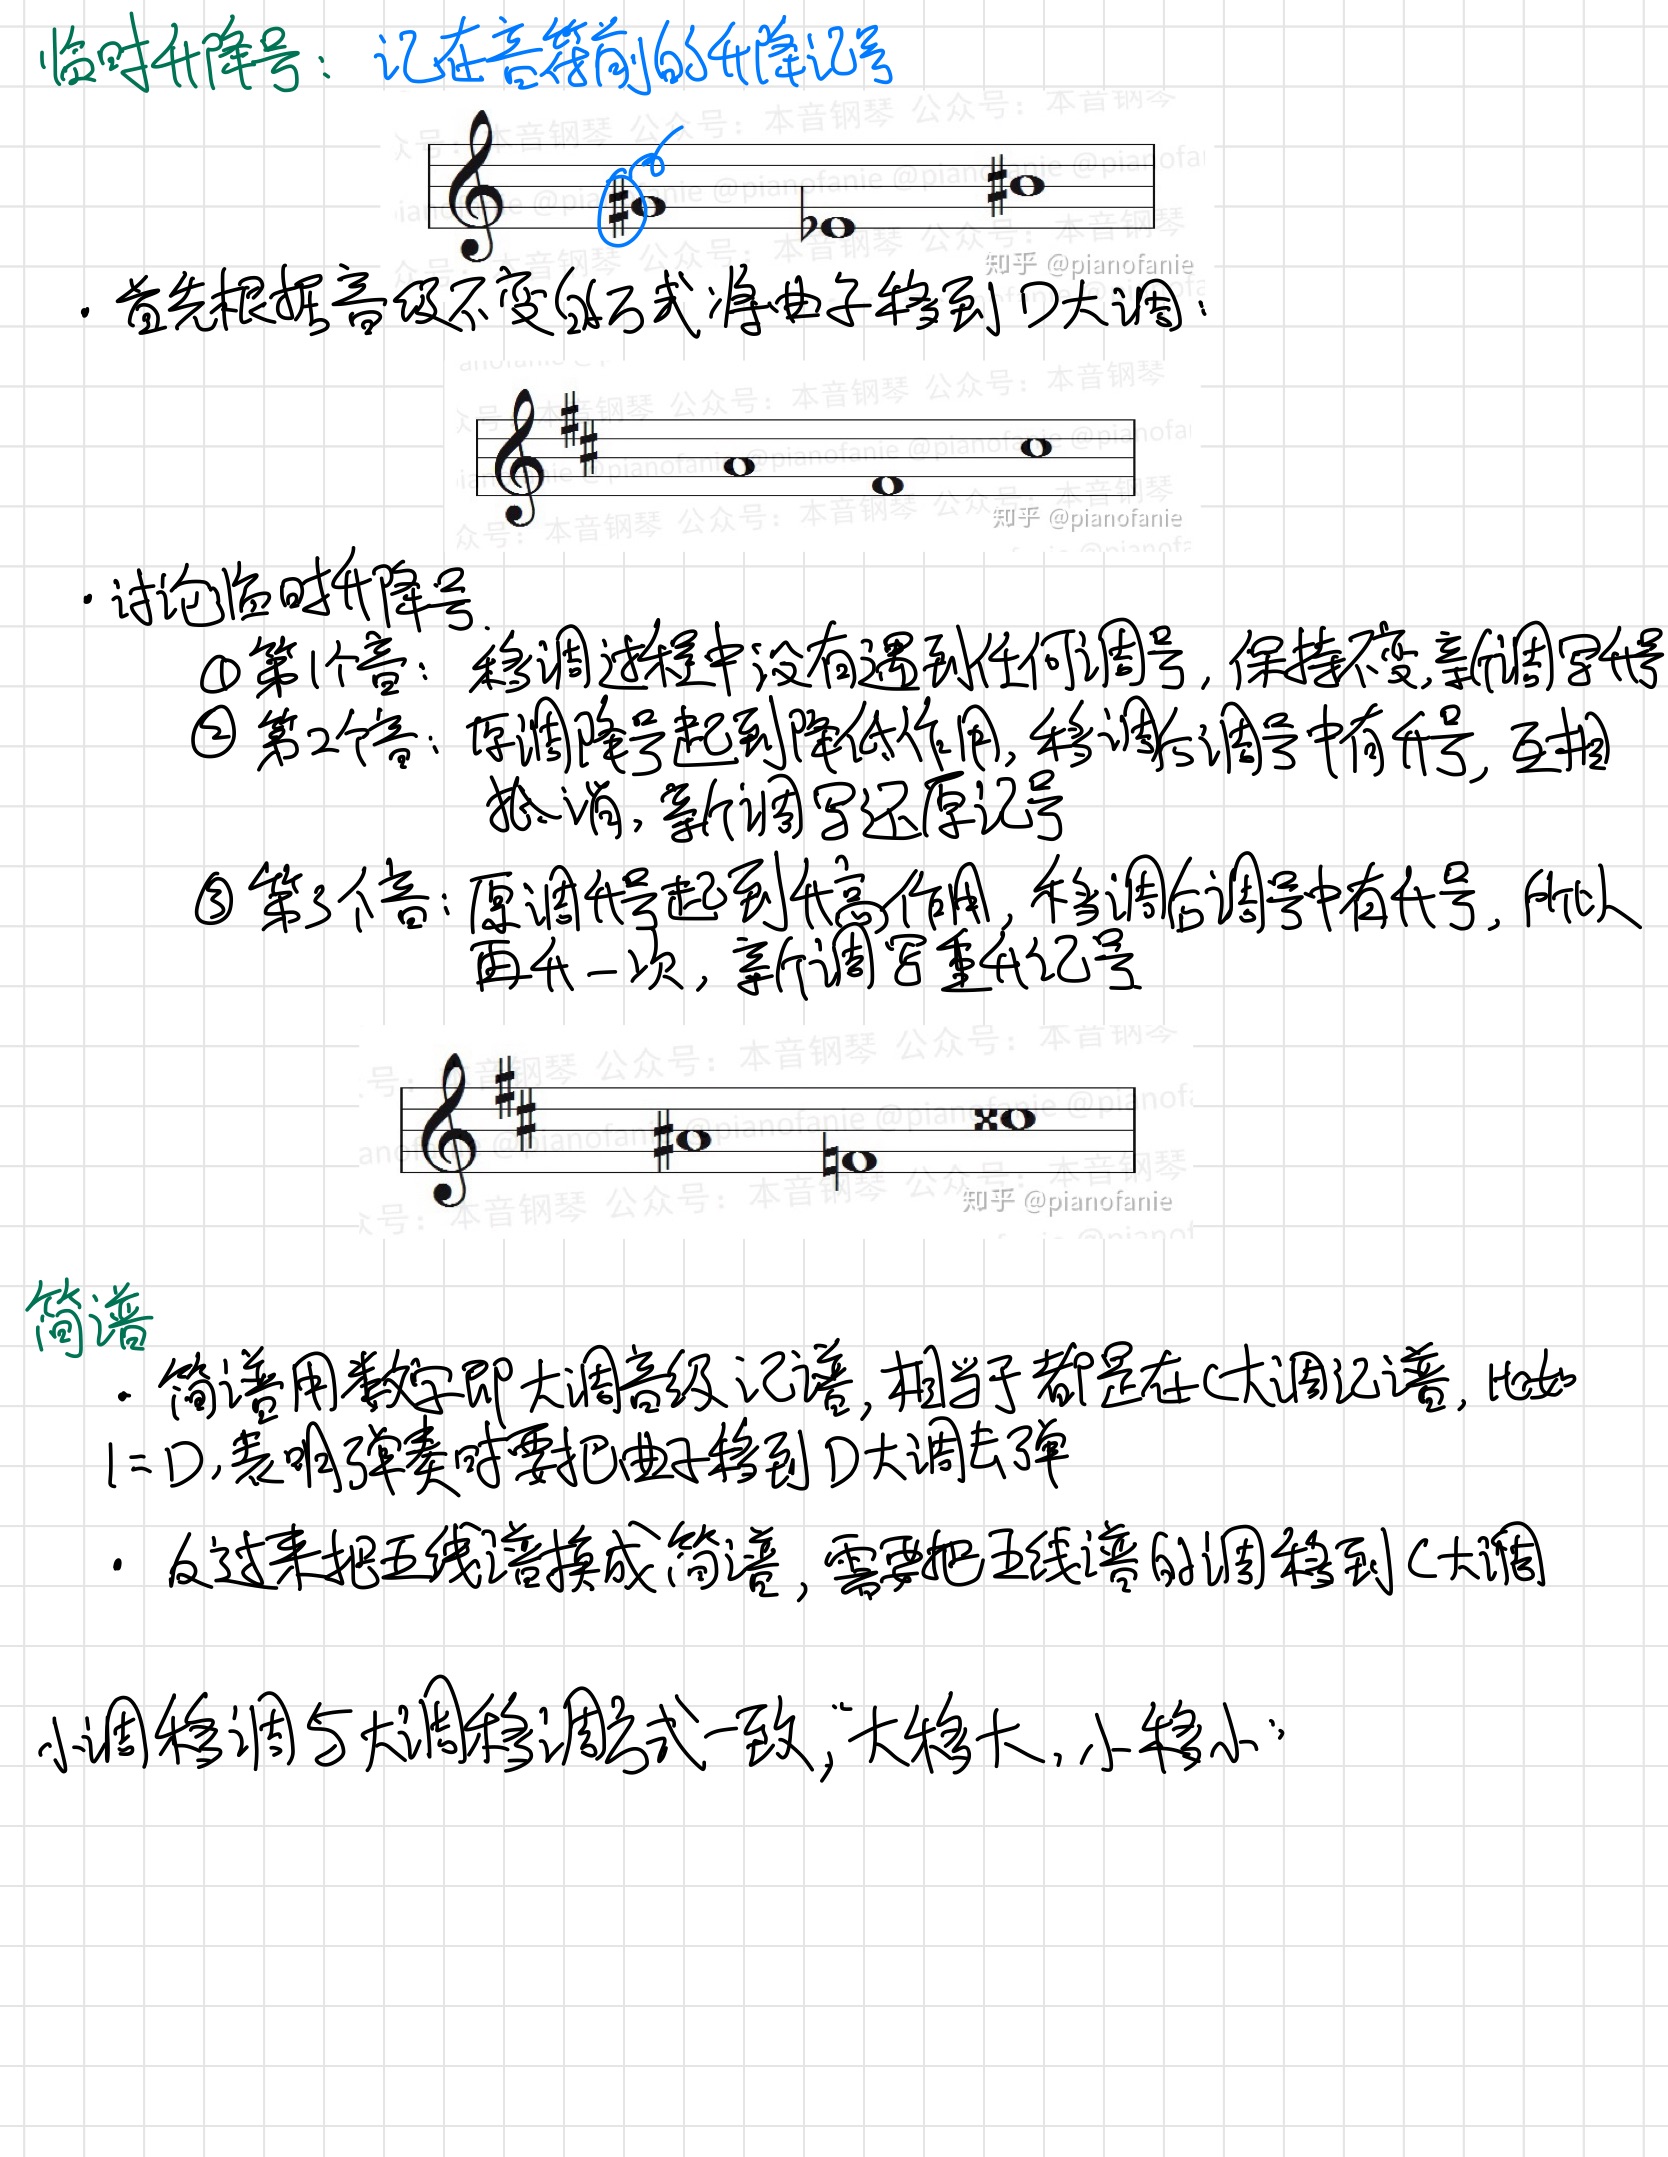 临时升降号：记在音符前的升降记号
知乎 @pianofanie
· 首先根据音级不变的方式将曲子移到D大调：
知乎 @pianofanie
· 讨论临时升降号
① 第1个音：移调过程中没有遇到任何调号，保持不变，新调写升号
② 第2个音：原调降号起到降低作用，移调后调号中有升号，互相
抵消，新调写还原记号
③ 第3个音：原调升号起到升高作用，移调后调号中有升号，所以
再升一次，新调写重升记号
知乎 @pianofanie
简谱
· 简谱用数字即大调音级记谱，相当于都是在C大调记谱，比如
1=D，表明弹奏时要把曲子移到D大调去弹
· 反过来把五线谱换成简谱，需要把五线谱的调移到C大调
小调移调与大调移调方式一致，“大移大，小移小”